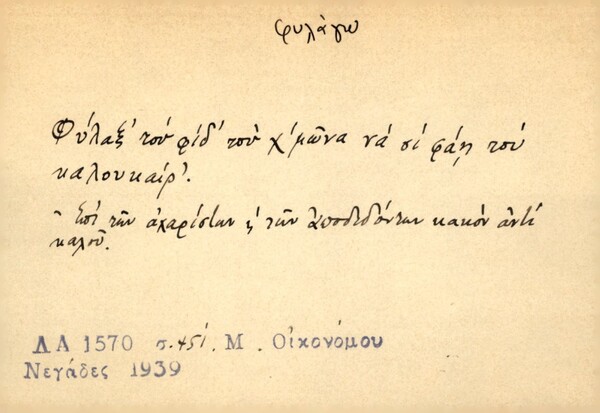 φυλάγω
Φύλαξ' τού φίδ' τού χ'μῶνα νά σί φάῃ τού
καλουκαίρ'.
~ Ἐπί τῶν ἀχαρίστων ἤ τῶν ἀποδιδόντων κακόν ἀντί
καλοῦ.
ΛΑ 1570 σ. 45/. Μ. Οἰκονόμου
Νεγάδες 1939